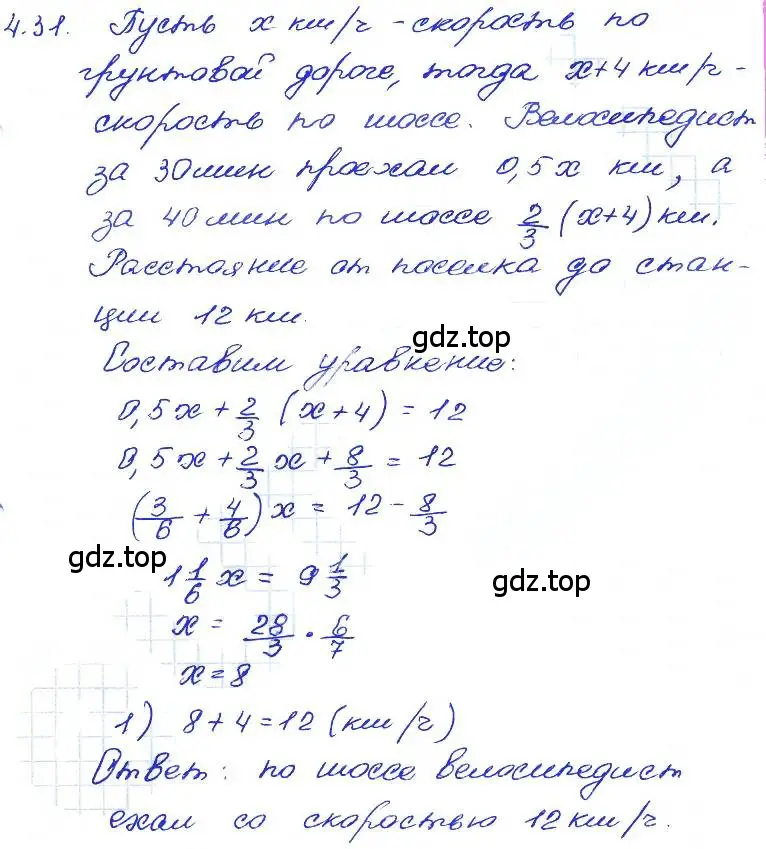 4.31. Пусть x км/ч - скорость по
грунтовой дороге, тогда x+4 км/ч -
скорость по шоссе. Велосипедист
за 30 мин проехал 0,5x км, а
за 40 мин по шоссе 2/3 (x+4) км.
Расстояние от поселка до стан-
ции 12 км.
gdz.top
Составим уравнение:
0,5x + 2/3 (x+4) = 12
0,5x + 2/3 x + 8/3 = 12
(3/6 + 4/6) x = 12 - 8/3
gdz.top
1 1/6 x = 9 1/3
gdz.top
x = 28/3 · 6/7
x = 8
1) 8 + 4 = 12 (км/ч)
Ответ: по шоссе велосипедист
ехал со скоростью 12 км/ч.